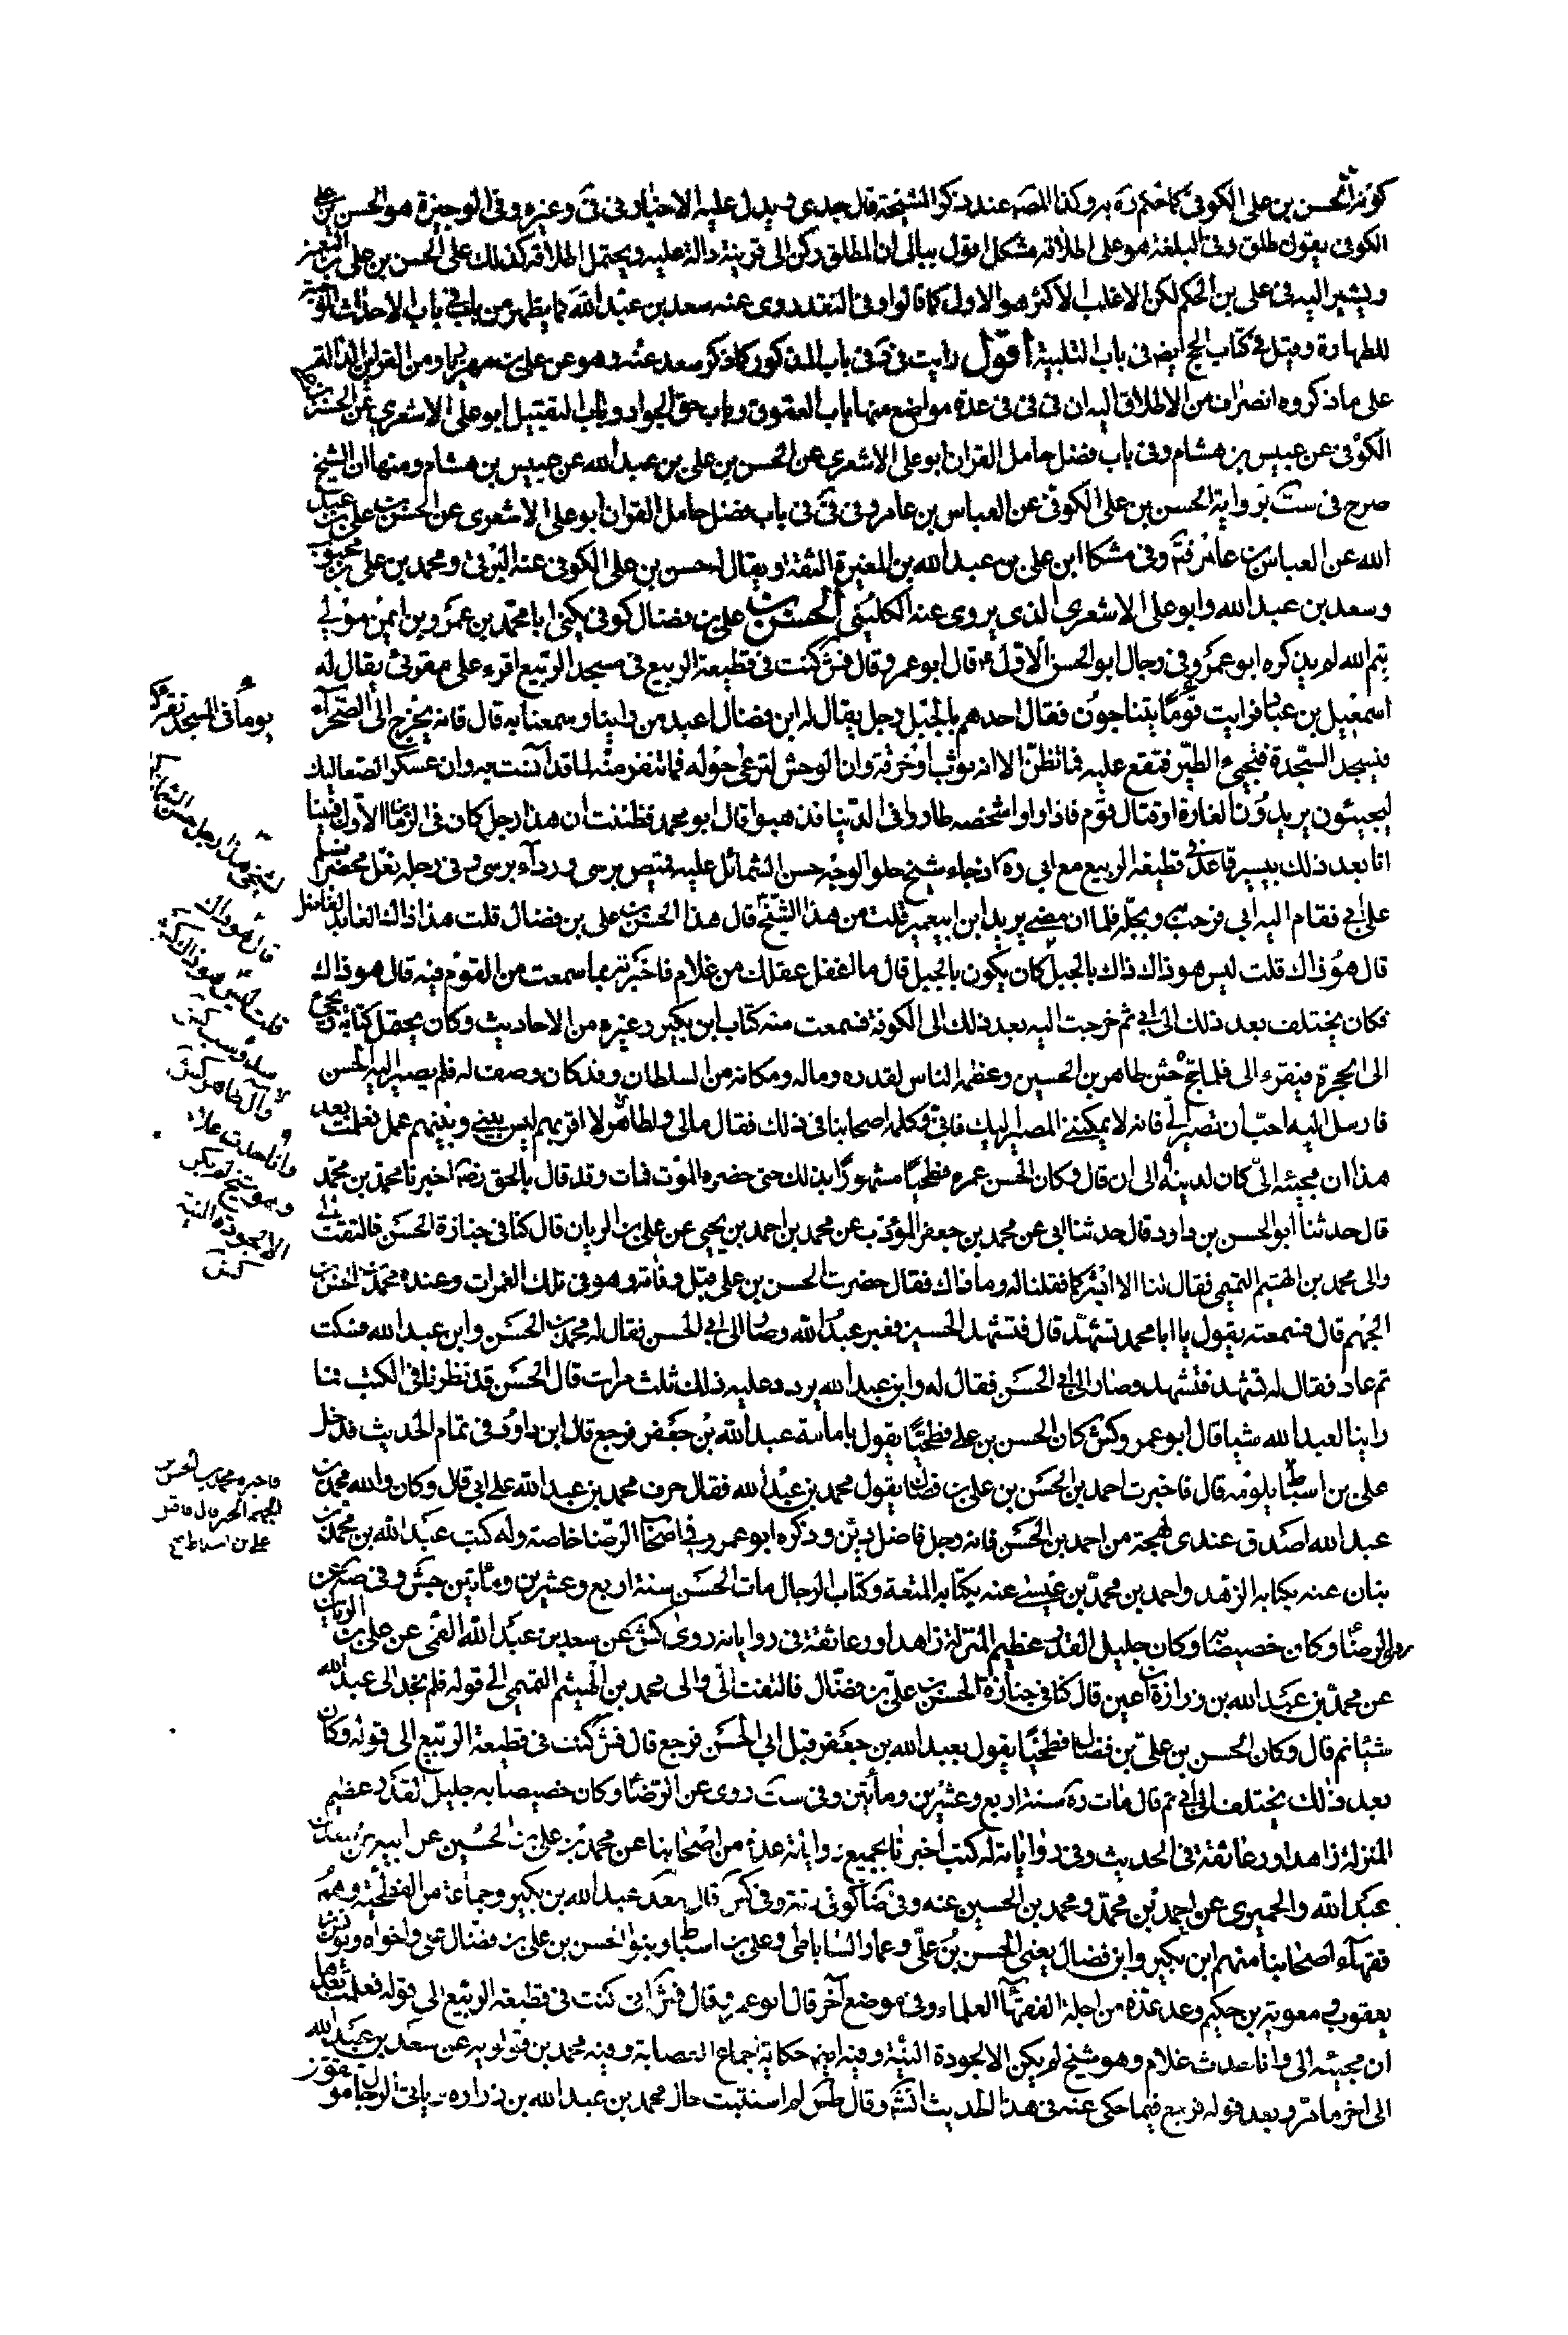 كونه الحسن بن على الكوفى كما حكم ره به وكذا المصه عند ذكر الشيخة قال جدى ويدل عليه الاخبار فى فى وغيره وفى الوجيزة هو الحسن بن على
الكوفى بقول طلق وفى البلغة هو على اطلاقه مشكل اقول ببالى ان المطلق ركن الى قرينة دالة عليه ويحتمل اطلاقه كذلك على الحسن بن على بن
ويشير اليه فى على بن الحكم لكن الاغلب الاكثر هو الاول كما قالوا وفى النقد روى عنه سعد بن عبد الله كما يظهر من باب الاحداث
للطهارة وقيل فى كتاب الحج ايضه فى باب التلبية اقول رايت فى فى باب المذكور كما ذكر سعد عنه وهو عن على بن مهزيار ومن القراين
على ما ذكروه انصراف من الاطلاق اليه ان فى فى فى عدة مواضع منها باب العقوق وباب حق الجوار وباب التقبيل ابو على الاشعرى عن الحسن بن على
الكوفى عن عبيس بن هشام وفى باب فضل حامل القران ابو على الاشعرى عن الحسن بن على بن عبد الله عن عبيس بن هشام ومنها ان الشيخ
صرح فى ست برواية الحسن بن على الكوفى عن العباس بن عامر وفى فى فى باب فضل حامل القران ابو على الاشعرى عن الحسن بن على بن عبد
الله عن العباس بن عامر فتم وفى مشكا ابن على بن عبد الله بن المغيرة الثقة ويقال له حسن بن على الكوفى عنه البرقى ومحمد بن على بن محبوب
وسعد بن عبد الله وابو على الاشعرى الذى يروى عنه الكلينى الحسن بن على بن فضال كوفى يكنى ابا محمد بن عمرو بن ايمن مولى
تيم الله لم يذكره ابو عمرو فى رجال ابو الحسن الاول ع قال ابو عمرو قال فش كنت فى قطيعة الربيع فى مسجد الربيع اقرء على مقرئ يقال له
اسمعيل بن عباد فرايت قوما يتناجون فقال احدهم بالجبل رجل يقال له ابن فضال اعبد من راينا وسمعنا به قال فانه يخرج الى الصحرآء
فيسجد السجدة فيجئ الطير فتقع عليه فما تظن الا انه ثوب او خرقة وان الوحش لترعى حوله فما تنفر منه لما قد آنست به وان عسكر الصعاليك
ليجيئون يريدون الغارة او قتال قوم فاذا راوا شخصه طاروا فى الدنيا فذهبوا قال ابو محمد فظننت ان هذا رجل كان فى الزمان الاول فبينا
انا بعد ذلك بيسير قاعد فى قطيعة الربيع مع ابى ره اذ جاء شيخ حلو الوجه حسن الشمائل عليه قميص نرسى وردآء نرسى وفى رجله نعل مخصر فسلم
على ابى فقام اليه ابى فرحب به وبجله فلما ان مضى يريد ابن ابى عمير قلت من هذا الشيخ قال هذا الحسن بن على بن فضال قلت هذا ذاك العابد الفاضل
قال هو ذاك قلت ليس هو ذاك ذاك بالجبل كان يكون بالجبل قال ما اغفل عقلك من غلام فاخبرته بما سمعت من القوم فيه قال هو ذاك
فكان يختلف بعد ذلك الى ابى ثم خرجت اليه بعد ذلك الى الكوفة فسمعت منه كتاب ابن بكير وغيره من الاحاديث وكان يحمل كتابه ويجئ
الى الحجرة فيقرء الى فلما حج ختن طاهر بن الحسين وعظمه الناس لقدره وماله ومكانه من السلطان وقد كان وصف له فلم يصير اليه الحسن
فارسل اليه احب ان تصير الى فانه لا يمكننى المصير اليك فابى وكلمه اصحابنا فى ذلك فقال مالى ولطاهر لا اقربهم ليس بينى وبينهم عمل فعلمت بعد
هذا ان مجيئه الى كان لدينه الى ان قال وكان الحسن عمره فطحيا مشهورا بذلك حتى حضره الموت فمات وقد قال بالحق رضه اخبرنا محمد بن محمد
قال حدثنا ابو الحسن بن داود قال حدثنا ابى عن محمد بن جعفر المؤدب عن محمد بن احمد بن يحيى عن على بن الريان قال كنا فى جنازة الحسن فالتفت الى
والى محمد بن الهيثم التميمى فقال لنا الا ابشركما فقلنا له وما ذاك فقال حضرت الحسن بن على قبل وفاته وهو فى تلك الغمرات وعنده محمد بن الحسن بن
الجهم قال فسمعته يقول يا ابا محمد تشهد قال فتشهد الحسن فعبر عبد الله وصار الى ابى الحسن فقال له محمد بن الحسن واين عبد الله فسكت
ثم عاد فقال له تشهد فتشهد وصار الى ابى الحسن فقال له واين عبد الله يردد عليه ذلك ثلث مرات قال الحسن قد نظرنا فى الكتب فما
راينا لعبد الله شيئا قال ابو عمرو كش كان الحسن بن على فطحيا يقول بامامة عبد الله بن جعفر فرجع قال ابن داود فى تمام الحديث فدخل
على بن اسباط يلومه قال فاخبرت احمد بن الحسن بن على بن فضال بقول محمد بن عبد الله فقال حرف محمد بن عبد الله على ابى قال وكان والله محمد بن
عبد الله اصدق عندى لهجة من احمد بن الحسن فانه رجل فاضل دين وذكره ابو عمرو فى اصحاب الرضا خاصة وله كتب عبد الله بن محمد بن
بنان عنه بكتابه الزهد واحمد بن محمد بن عيسى عنه بكتابه المتعة وكتاب الرجال مات الحسن سنة اربع وعشرين ومأتين جش وفى صه عن
روى الرضا ع وكان خصيصا وكان جليل القدر عظيم المنزلة زاهدا ورعا ثقة فى رواياته روى كش عن سعد بن عبد الله القمى عن على بن الريان
عن محمد بن عبد الله بن زرارة بن اعين قال كنا فى جنازة الحسن بن على بن فضال فالتفت الى والى محمد بن الهيثم التميمى الى قوله فلم نجد لعبد الله
شيئا ثم قال وكان الحسن بن على بن فضال فطحيا يقول بعبد الله بن جعفر قبل ابى الحسن فرجع قال فش كنت فى قطيعة الربيع الى قوله وكان
بعد ذلك يختلف الى ابى ثم قال مات ره سنة اربع وعشرين ومأتين وفى ست روى عن الرضا ع وكان خصيصا به جليل القدر عظيم
المنزلة زاهدا ورعا ثقة فى الحديث وفى رواياته له كتب اخبرنا بجميع رواياته عدة من اصحابنا عن محمد بن على بن الحسين عن ابيه عن سعد بن
عبد الله والحميرى عن احمد بن محمد ومحمد بن الحسين عنه وفى ضا كوفى ثقة وفى كش قال بعد عبد الله بن بكير وجماعة من الفطحية وهم
فقهآء اصحابنا منهم ابن بكير وابن فضال يعنى الحسن بن على وعمار الساباطى وعلى بن اسباط وبنو الحسن بن على بن فضال على واخواه ويونس بن
يعقوب ومعوية بن حكيم وعد عدة من اجلة الفقهآء العلماء وفى موضع آخر قال ابو عمرو قال فش انى كنت فى قطيعة الربيع الى قوله فعلمت بعدها
ان مجيئه الى وانا حدث غلام وهو شيخ لم يكن الا لجودة النية وفيه ايضه حكاية اجماع العصابة وفيه محمد بن قولويه عن سعد بن عبد الله
الى اخر ما مر وبعد قوله فرجع فيما حكى عنه فى هذا الحديث انتهى وقال طس لم استثبت حال محمد بن عبد الله بن زراره
يوما فى المسجد نفر
قال هو ذاك
قلت ليس هو ذاك
وآل طاهر كش
وانا حدث غلام
وهو شيخ لم يكن
الا لجودة النية
كش
فاخبره محمد بن الحسن بن
الجهم الخبر قال فاقبل
على بن اسباط